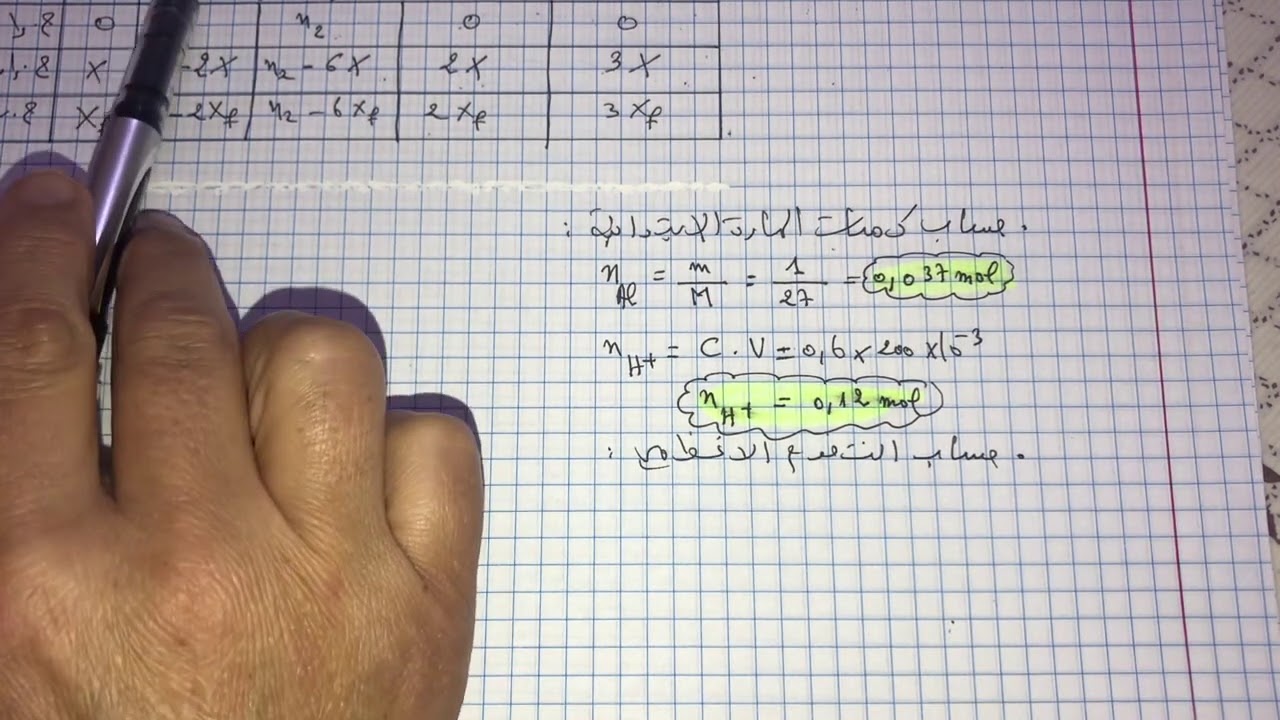 ح.إ 0 n₂ 0 0
X -2X n₂ - 6X 2X 3X
X -2Xf n₂ - 6Xf 2Xf 3Xf
. حساب كميات المادة الابتدائية :
n Al = m/M = 1/27 = 0,037 mol
n H+ = C . V = 0,6 x 200 x 10⁻³
n H+ = 0,12 mol
. حساب التقدم الأعظمي :